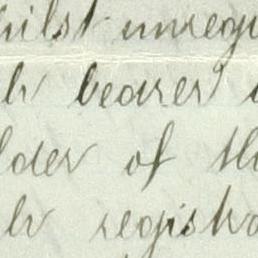 hilst unregi
h bearer
lder of th
h registra